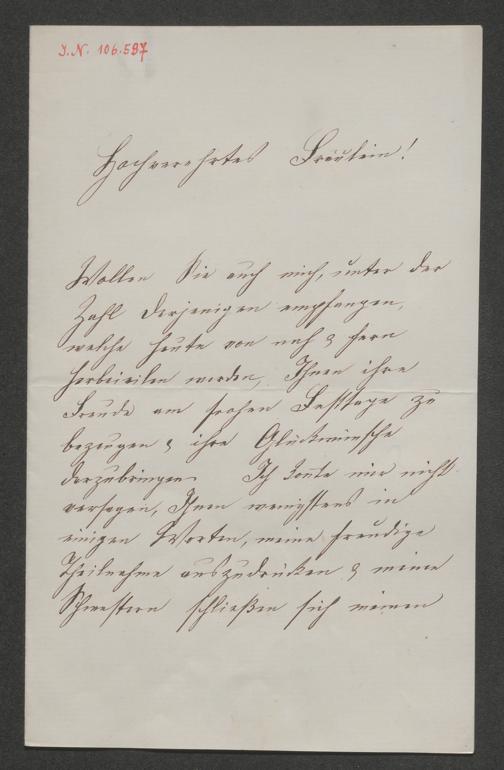 I.N. 106.597
Hochverehrtes Fräulein!
Wollen Sie auch mich, unter der
Zahl derjenigen empfangen,
welche heute von nah & fern
herbeieilen werden, Ihnen ihre
Freude am frohen Festtage zu
bezeugen & ihre Glückwünsche
darzubringen. Ich konte mir nicht
versagen, Ihnen wenigstens in
einigen Worten, meine freudige
Theilnahme auszudrücken & meine
Schwestern schließen sich meinen